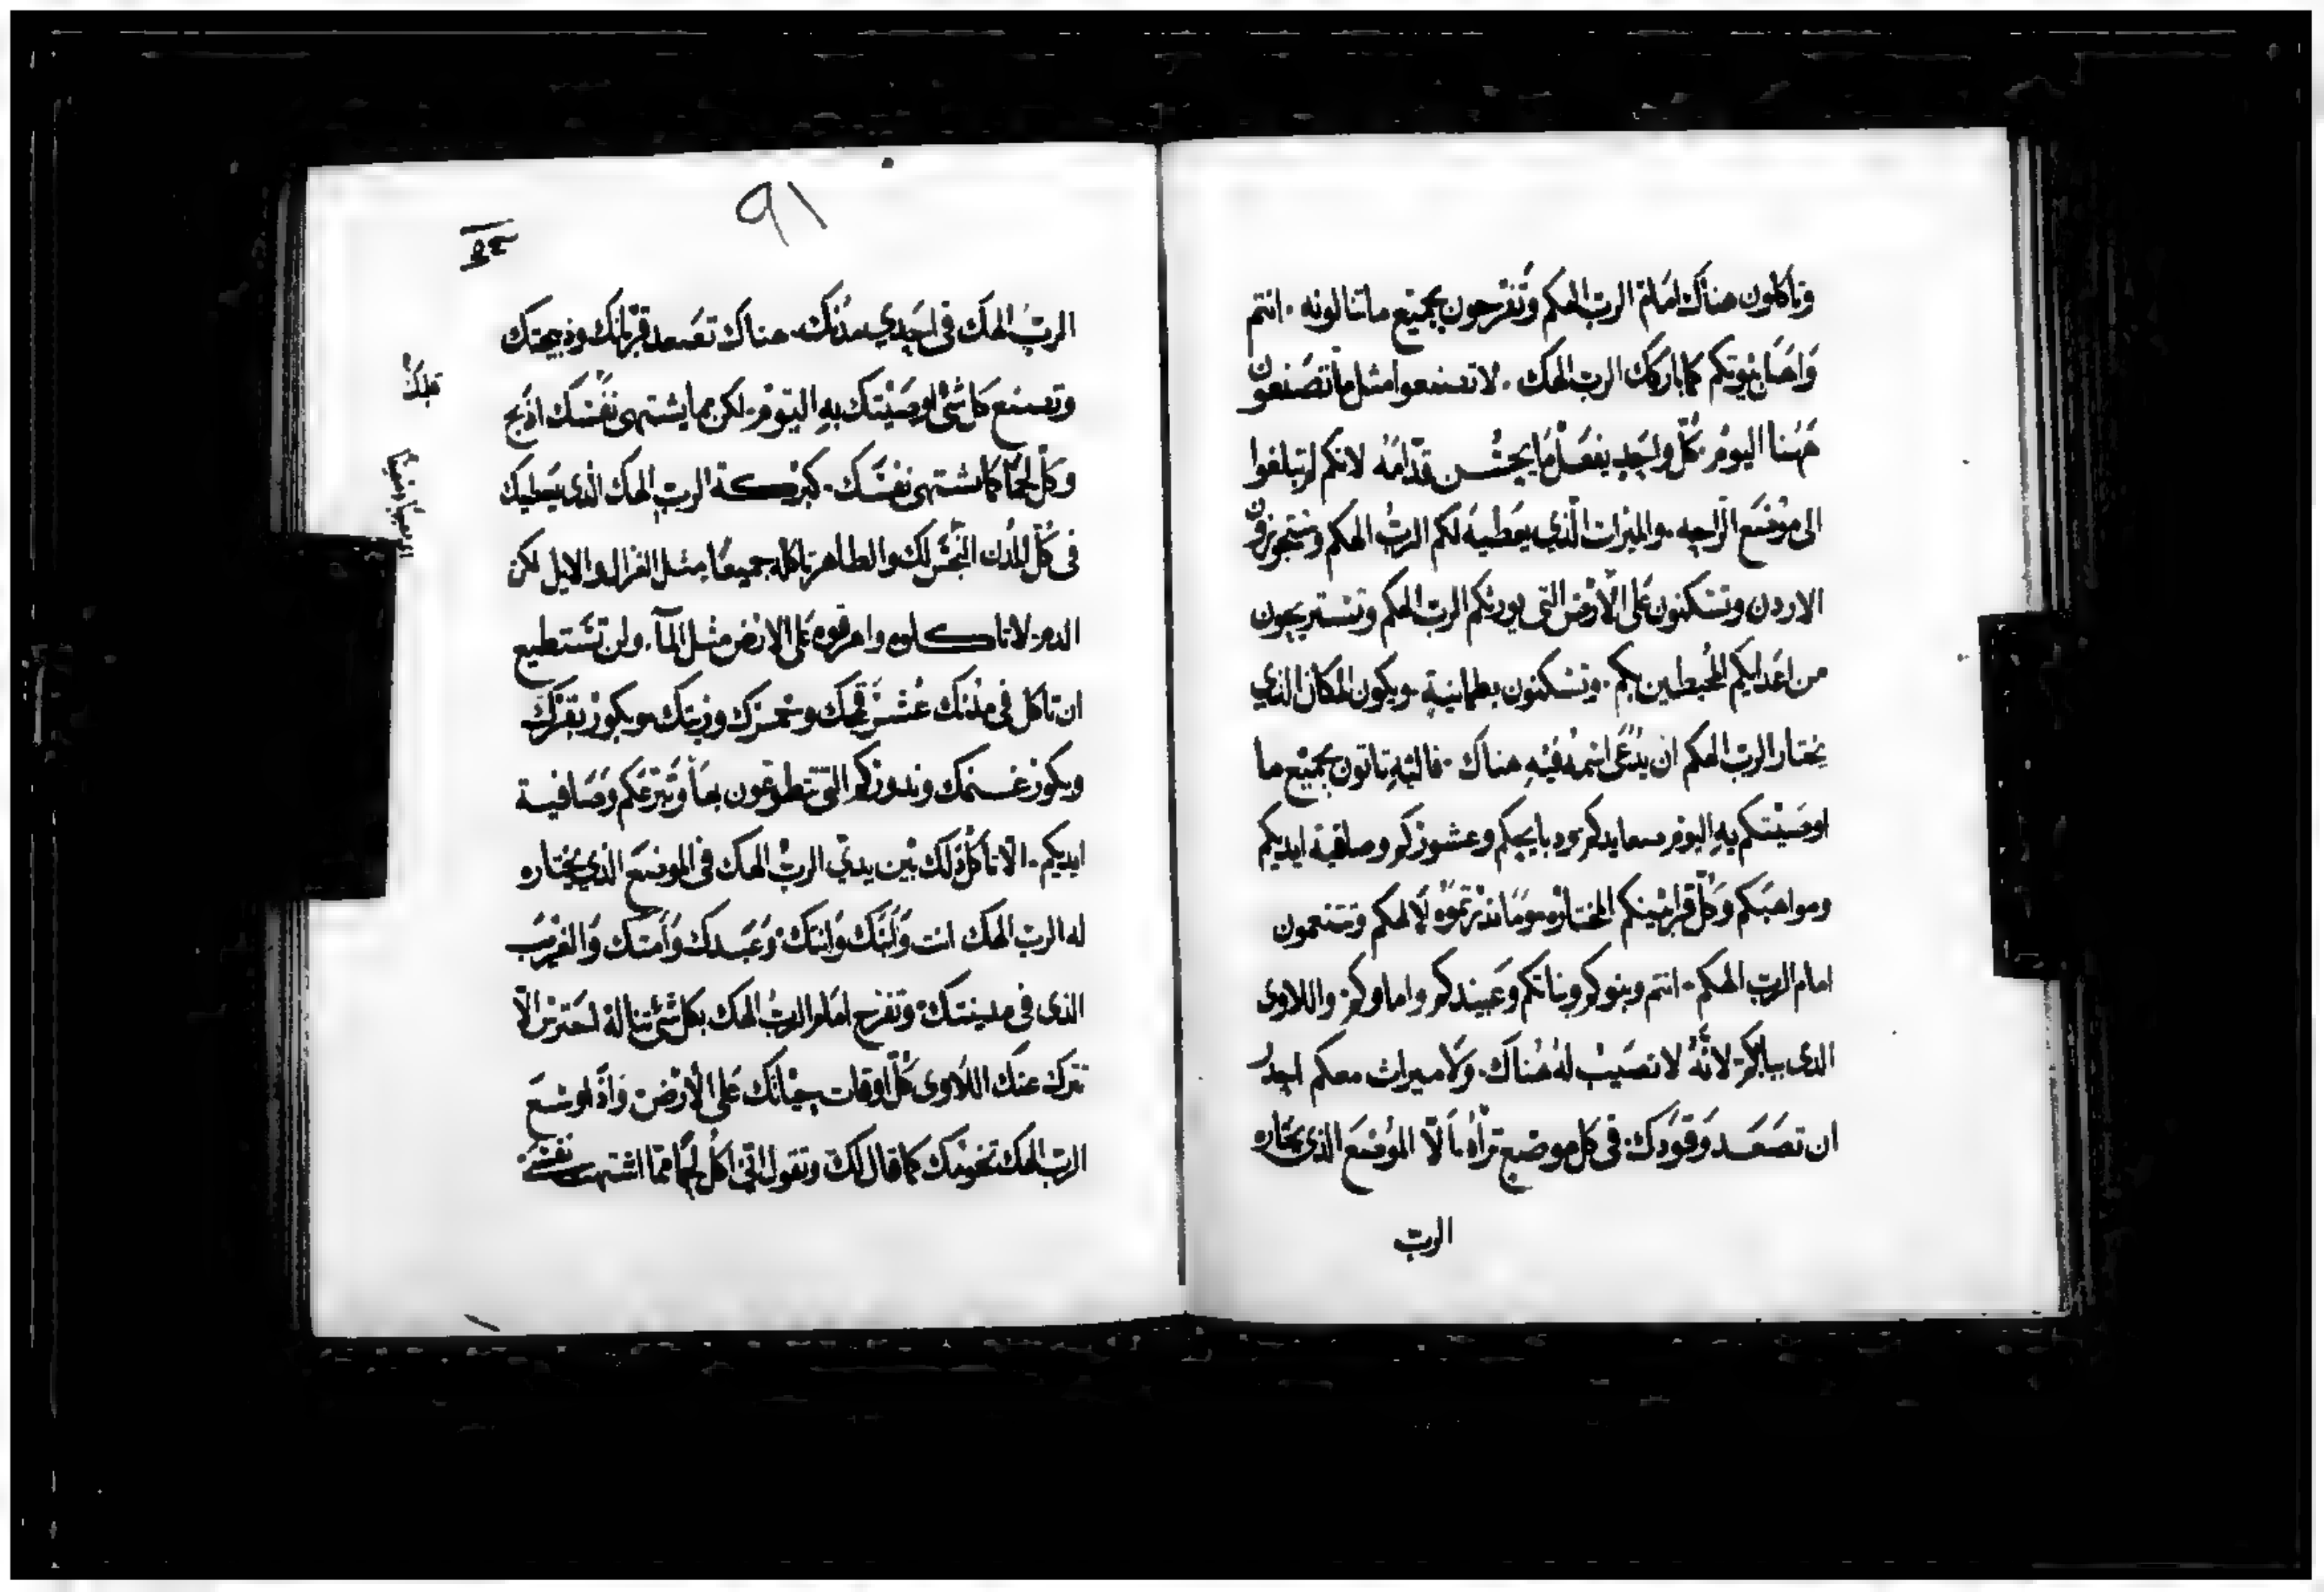 وتاكلون هناك امام الرب الهكم وتفرحون بجميع ما تنالونه . انتم
واهل بيوتكم كما باركك الرب الهك . لا تصنعوا مثل ما تصنعون
ههنا اليوم كل واحد يفعل ما يحسن قدامه لانكم لم تبلغوا
الى موضع الراحه والميراث الذي يعطيه لكم الرب الهكم وستجوزون
الاردن وتسكنون على الارض التى يورثكم الرب الهكم وتستريحون
من اعدايكم المحيطين بكم . وتسكنون بطمانينة ويكون المكان الذي
يختار الرب الهكم ان يدعى اسمه فيه هناك . فالىه تاتون بجميع ما
اوصيتكم به اليوم صعايدكم ودبايحكم وعشوركم وصافية ايديكم
ومواهبكم وكل قرابينكم المختاره وما نذرتموه لالهكم وتتنعمون
امام الرب الهكم . انتم وبنوكم وبناتكم وعبيدكم واماوكم واللاوى
الذى ببابكم لانه لا نصيب له هناك . ولا ميراث معكم احدر
ان تصعد وقودك فى كل موضع تراه . الا الموضع الذى يختاره
الرب
٩١
الرب الهك فى احدي مدنك . هناك تصعد قربانك وذبيحتك
وتصنع كل شى اوصيتك به اليوم . لكن مما يشتهى نفسك اذبح
وكل لحما كما تشتهى نفسك . كبركة الرب الهك الذى يعطيك
فى كل المدن النجس لك والطاهر تاكله جميعا مثل الغزال والايل لكن
الدم لا تاكلوه واهرقوه على الارض مثل الماء . ولن تستطيع
ان تاكل فى مدنك عشر قمحك وخمرك وزيتك وبكور بقرك
وبكور غنمك ونذوركم التى تتطوعون بها وتبرعكم وصافية
ايديكم . الا تاكل ذلك بين يدي الرب الهك فى الموضع الذي يختاره
له الرب الهك انت وابنك وابنتك وعبدك وأمتك والغريب
الذى فى مدينتك وتفرح امام الرب الهك بكل شئ تناله احترس الا
تترك عنك اللاوى كل اوقات حياتك على الارض واذا وسع
الرب الهك تخومك كما قال لك وتقول انى اكل لحما مما اشتهت نفسى